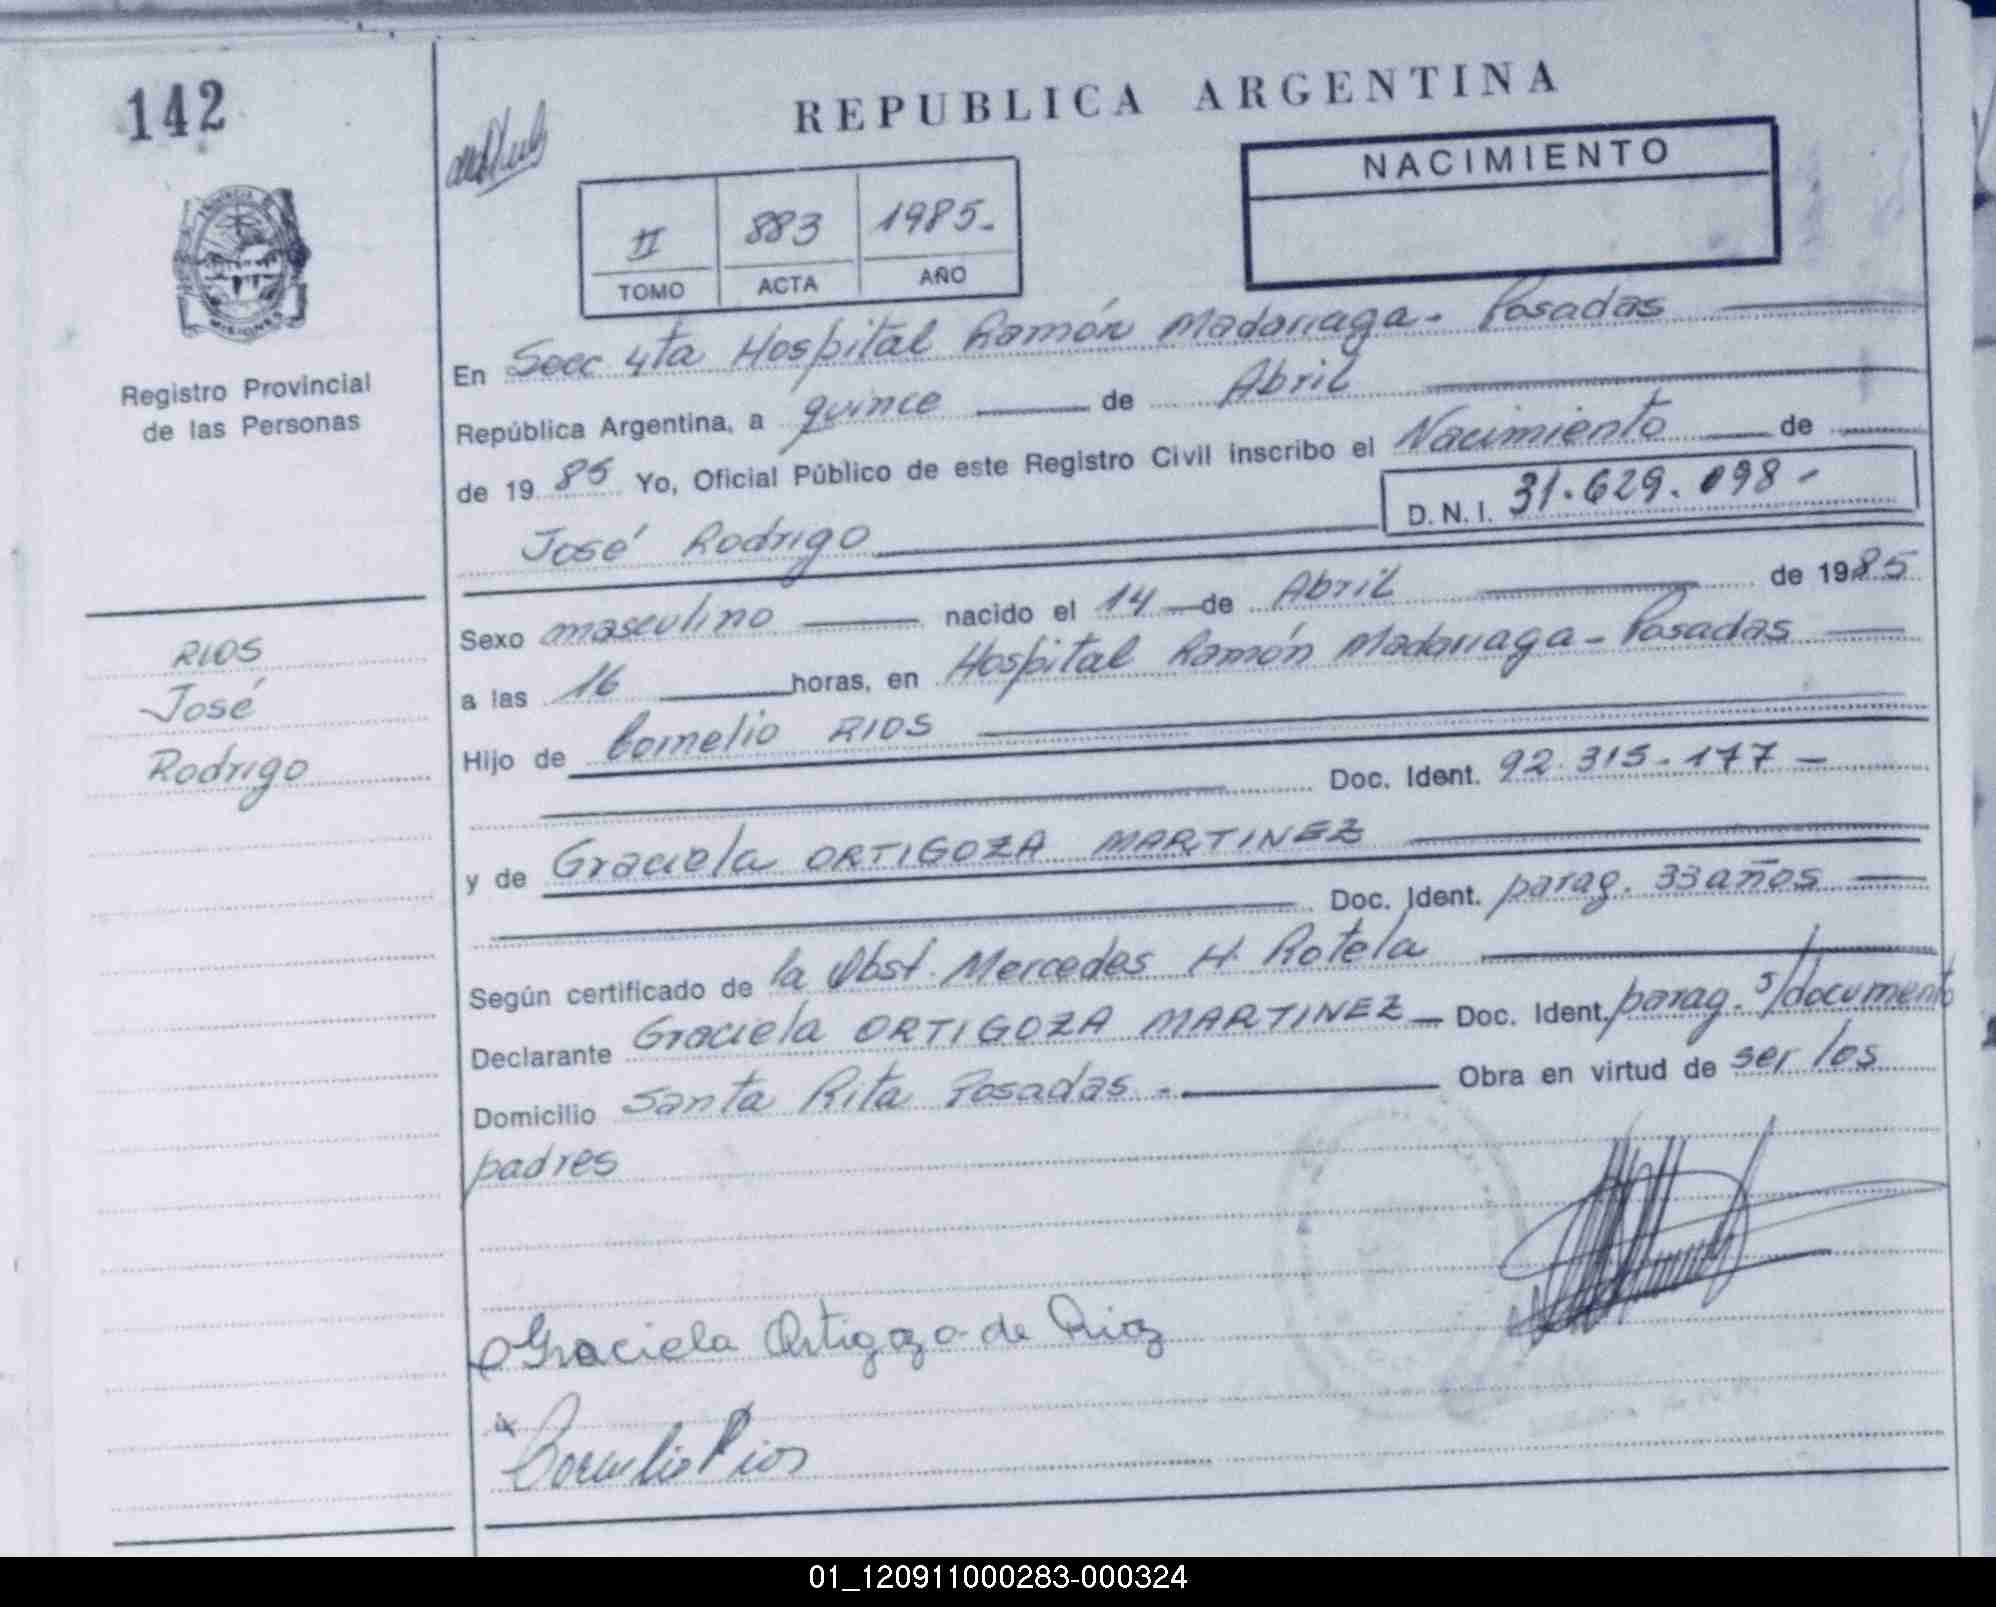 142
REPUBLICA ARGENTINA
NACIMIENTO
II 883 1985.
TOMO ACTA AÑO
PROVINCIA DE
MISIONES
Registro Provincial
de las Personas
En Secc 4ta Hospital Ramón Madariaga - Posadas
República Argentina, a quince de Abril
de 1985 Yo, Oficial Público de este Registro Civil inscribo el Nacimiento de
D. N. I. 31.629.098-
José Rodrigo
Sexo masculino nacido el 14 de Abril de 1985
RIOS
José
Rodrigo
a las 16 horas, en Hospital Ramón Madariaga - Posadas
Hijo de Cornelio RIOS
Doc. Ident. 92.315.177-
y de Graciela ORTIGOZA MARTINEZ
Doc. Ident. parag. 33 años
Según certificado de la Obst. Mercedes H. Rotela
Declarante Graciela ORTIGOZA MARTINEZ - Doc. Ident. parag. s/documento
Domicilio Santa Rita Posadas.- Obra en virtud de ser los
padres
Graciela Ortigoza de Rioz
Cornelio Rios
01_120911000283-000324